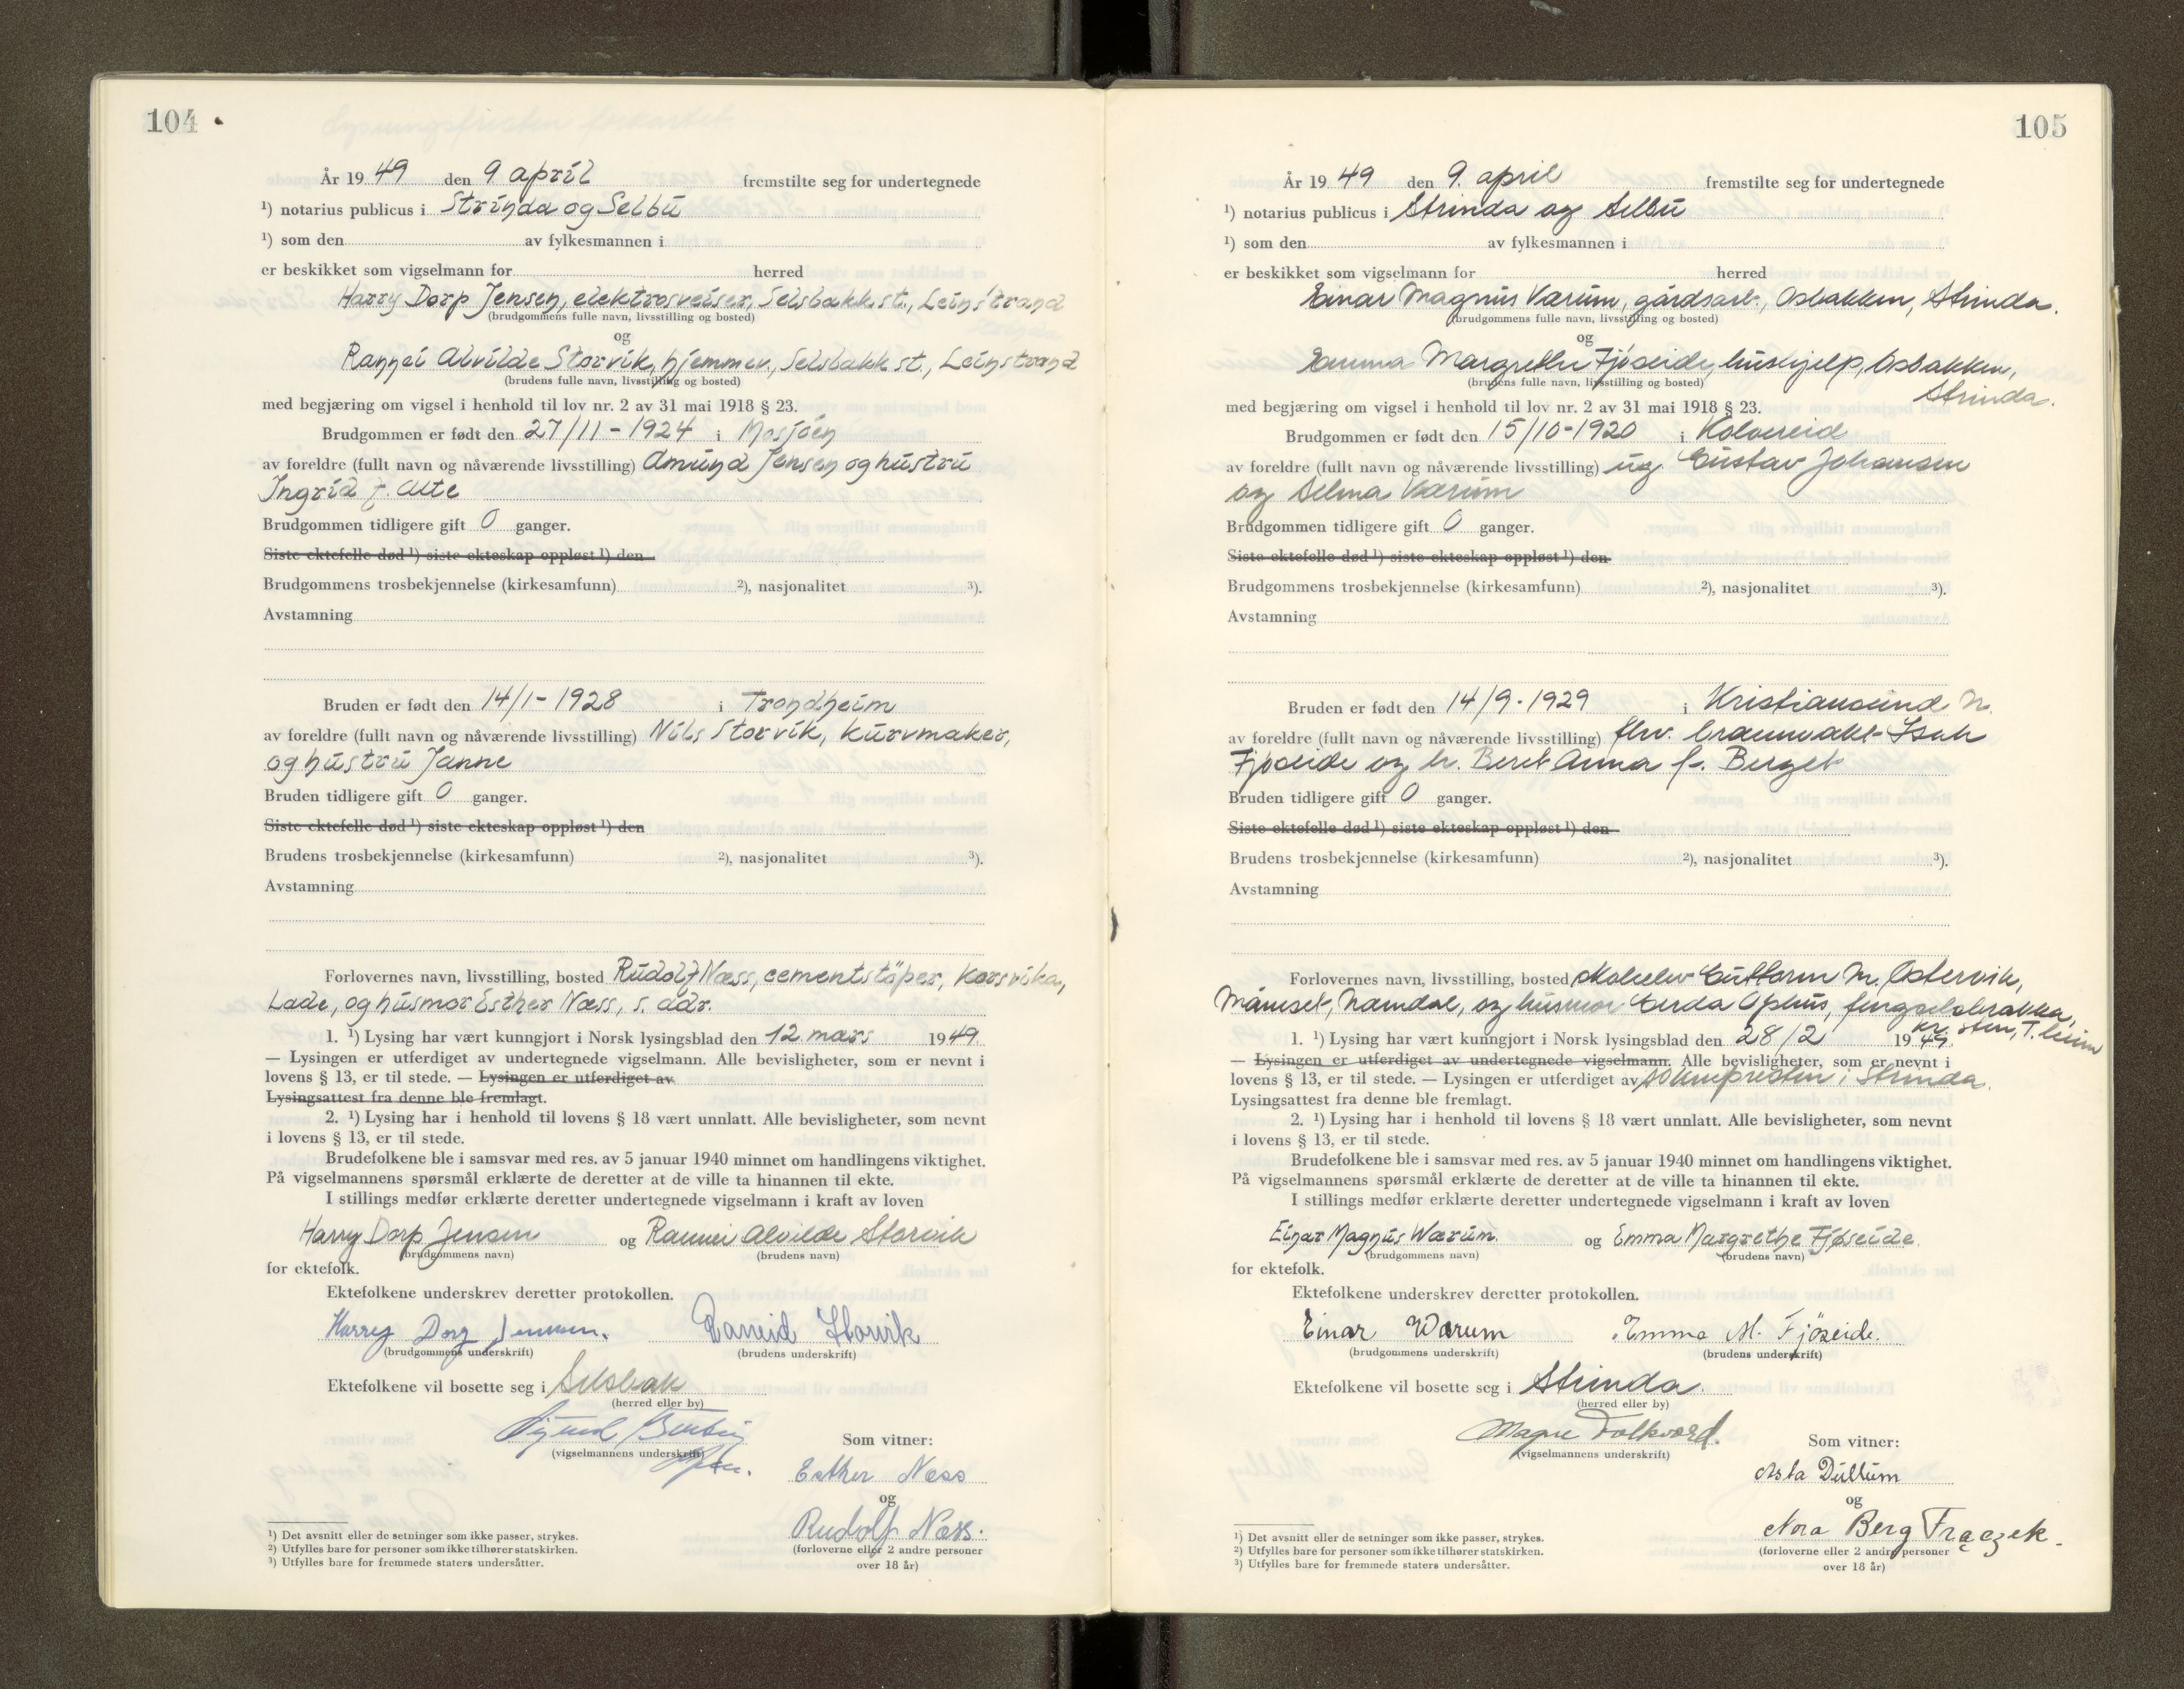 104
År 19 49 den 9 april fremstilte seg for undertegnede
¹) notarius publicus i Strinda og Selbu
¹) som den av fylkesmannen i
er beskikket som vigselmann for herred
Harry Dorp Jensen, elektrosveiser, Selsbakk st., Leinstrand
(brudgommens fulle navn, livsstilling og bosted)
og
Rannei Alvilde Storvik, hjemmev., Selsbakk st., Leinstrand
(brudens fulle navn, livsstilling og bosted)
med begjæring om vigsel i henhold til lov nr. 2 av 31 mai 1918 § 23.
Brudgommen er født den 27/11 - 1924 i Mosjøen
av foreldre (fullt navn og nåværende livsstilling) Amund Jensen og hustru
Ingrid f. Alte
Brudgommen tidligere gift 0 ganger.
Siste ektefelle død ¹) siste ekteskap oppløst ¹) den
Brudgommens trosbekjennelse (kirkesamfunn) ²), nasjonalitet ³).
Avstamning
Bruden er født den 14/1 - 1928 i Trondheim
av foreldre (fullt navn og nåværende livsstilling) Nils Storvik, kurvmaker,
og hustru Janne
Bruden tidligere gift 0 ganger.
Siste ektefelle død ¹) siste ekteskap oppløst ¹) den
Brudens trosbekjennelse (kirkesamfunn) ²), nasjonalitet ³).
Avstamning
Forlovernes navn, livsstilling, bosted Rudolf Næss, cementstöper, Korsvika,
Lade, og husmor Esther Næss, s. adr.
1. ¹) Lysing har vært kunngjort i Norsk lysingsblad den 12 mars 1949
— Lysingen er utferdiget av undertegnede vigselmann. Alle bevisligheter, som er nevnt i
lovens § 13, er til stede. — Lysingen er utferdiget av
Lysingsattest fra denne ble fremlagt.
2. ¹) Lysing har i henhold til lovens § 18 vært unnlatt. Alle bevisligheter, som nevnt
i lovens § 13, er til stede.
Brudefolkene ble i samsvar med res. av 5 januar 1940 minnet om handlingens viktighet.
På vigselmannens spørsmål erklærte de deretter at de ville ta hinannen til ekte.
I stillings medfør erklærte deretter undertegnede vigselmann i kraft av loven
Harry Dorp Jensen og Rannei Alvilde Storvik
(brudgommens navn) (brudens navn)
for ektefolk.
Ektefolkene underskrev deretter protokollen.
Harry Dorp Jensen. Ranneid Storvik
(brudgommens underskrift) (brudens underskrift)
Ektefolkene vil bosette seg i Selsbak
(herred eller by)
(vigselmannens underskrift)
Som vitner:
Esther Næss
og
Rudolf Næss.
(forloverne eller 2 andre personer
over 18 år)
¹) Det avsnitt eller de setninger som ikke passer, strykes.
²) Utfylles bare for personer som ikke tilhører statskirken.
³) Utfylles bare for fremmede staters undersåtter.
105
År 19 49 den 9. april fremstilte seg for undertegnede
¹) notarius publicus i Strinda og Selbu
¹) som den av fylkesmannen i
er beskikket som vigselmann for herred
Einar Magnus Værum, gårdsarb., Osbakken, Strinda.
(brudgommens fulle navn, livsstilling og bosted)
og
Emma Margrethe Fjøseide, hushjelp, Osbakken,
Strinda.
(brudens fulle navn, livsstilling og bosted)
med begjæring om vigsel i henhold til lov nr. 2 av 31 mai 1918 § 23.
Brudgommen er født den 15/10-1920 i Kolvereid
av foreldre (fullt navn og nåværende livsstilling) ug. Gustav Johansen
og Selma Værum
Brudgommen tidligere gift 0 ganger.
Siste ektefelle død ¹) siste ekteskap oppløst ¹) den
Brudgommens trosbekjennelse (kirkesamfunn) ²), nasjonalitet ³).
Avstamning
Bruden er født den 14/9 - 1929 i Kristiansund N.
av foreldre (fullt navn og nåværende livsstilling) fhv. brannvakt Isak
Fjøseide og h. Beret Anna f. Berget
Bruden tidligere gift 0 ganger.
Siste ektefelle død ¹) siste ekteskap oppløst ¹) den
Brudens trosbekjennelse (kirkesamfunn) ²), nasjonalitet ³).
Avstamning
Forlovernes navn, livsstilling, bosted skoleelev Guttorm M. Ostervik,
Namdal, og husmor Gerda Ophus, fengselsbrakka,
Kr.sten, T.heim
1. ¹) Lysing har vært kunngjort i Norsk lysingsblad den 28/2 1949.
— Lysingen er utferdiget av undertegnede vigselmann. Alle bevisligheter, som er nevnt i
lovens § 13, er til stede. — Lysingen er utferdiget av soknepresten i Strinda.
Lysingsattest fra denne ble fremlagt.
2. ¹) Lysing har i henhold til lovens § 18 vært unnlatt. Alle bevisligheter, som nevnt
i lovens § 13, er til stede.
Brudefolkene ble i samsvar med res. av 5 januar 1940 minnet om handlingens viktighet.
På vigselmannens spørsmål erklærte de deretter at de ville ta hinannen til ekte.
I stillings medfør erklærte deretter undertegnede vigselmann i kraft av loven
Einar Magnus Wærum og Emma Margrethe Fjøseide
(brudgommens navn) (brudens navn)
for ektefolk.
Ektefolkene underskrev deretter protokollen.
Einar Wærum Emma M. Fjöseide.
(brudgommens underskrift) (brudens underskrift)
Ektefolkene vil bosette seg i Strinda.
(herred eller by)
Magne Folkvord.
(vigselmannens underskrift)
Som vitner:
Asta Dullum
og
Nora Berg Frączek.
(forloverne eller 2 andre personer
over 18 år)
¹) Det avsnitt eller de setninger som ikke passer, strykes.
²) Utfylles bare for personer som ikke tilhører statskirken.
³) Utfylles bare for fremmede staters undersåtter.